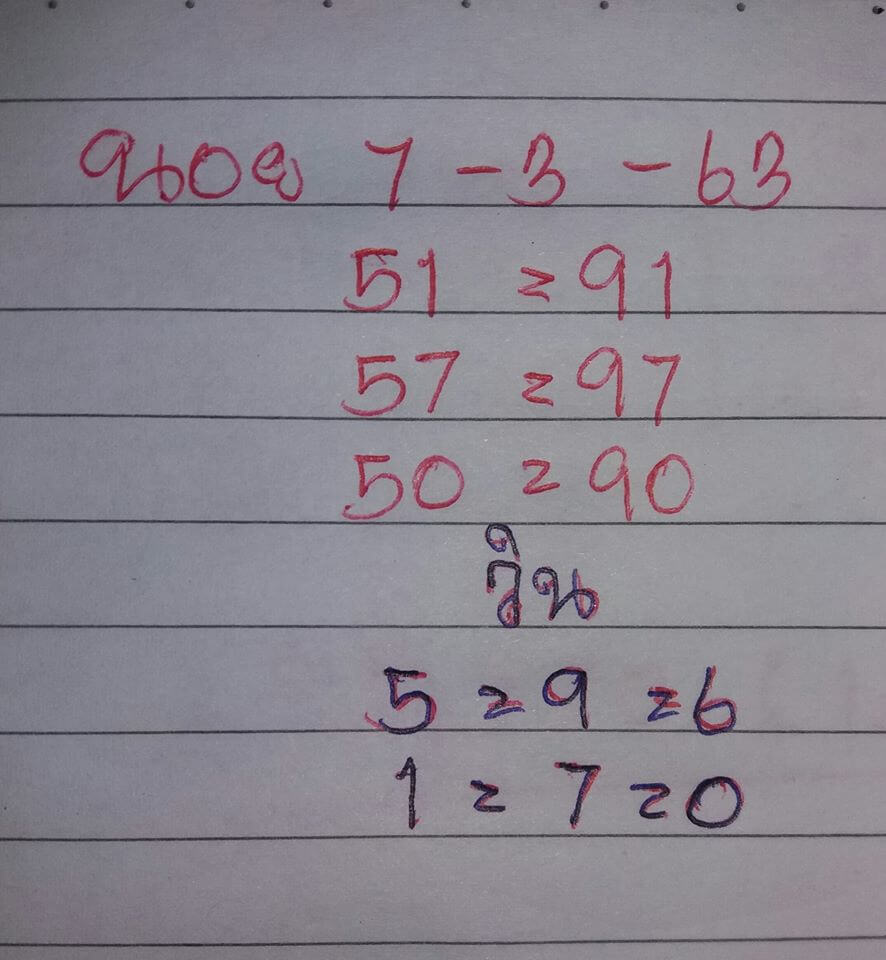 7 - 3 - 63
51 = 91
57 = 97
50 = 90
วิน
5 = 9 = 6
1 = 7 = 0